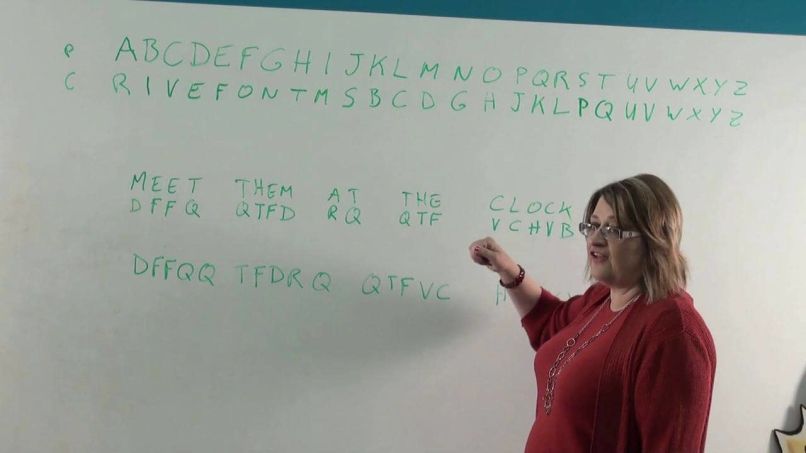 P ABCDEFGHIJKLMNOPQRSTUVWXYZ
C RIVEFONTMSBCDGHJKLPQUVWXYZ
MEET THEM AT THE CLOCK
DFFQ QTFD RQ QTF VCHVB
DFFQQ TFDRQ QTFVC